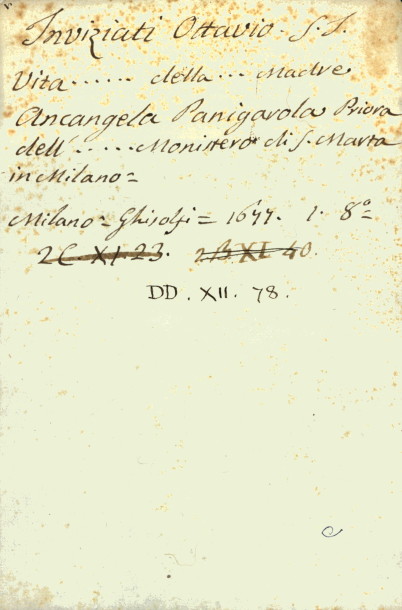 Inviziati Ottavio. S. J.
Vita ...... della ... Madre
Arcangela Panigarola Priora
dell' ..... Monistero di S. Marta
in Milano =
Milano = Ghisolfi = 1677. 1. 8.º =
2 C. XI. 23. 2 B XI 40.
DD. XII. 78.